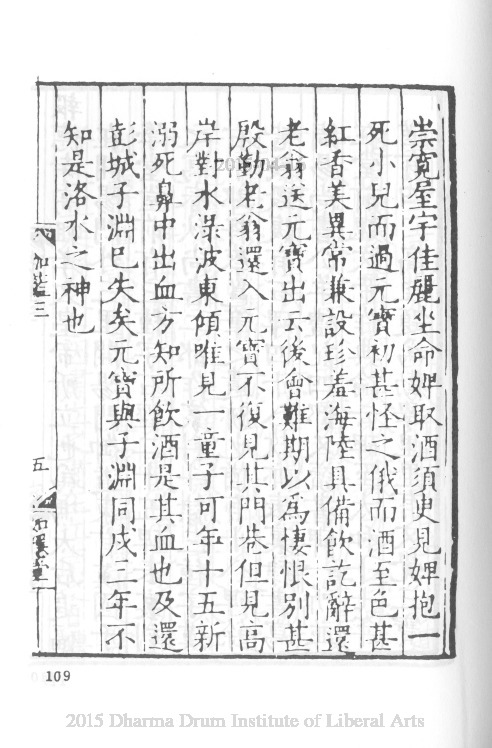 崇寬屋宇佳麗坐命婢取酒須臾見婢抱一
死小兒而過元寶初甚怪之俄而酒至色甚
紅香美異常兼設珍羞海陸具備飲訖辭還
老翁送元寶出云後會難期以為悽恨別甚
殷勤老翁還入元寶不復見其門巷但見高
岸對水淥波東傾唯見一童子可年十五新
溺死鼻中出血方知所飲酒是其血也及還
彭城子淵已失矣元寶與子淵同戍三年不
知是洛水之神也
伽藍三
五
如隱堂
109
2015 Dharma Drum Institute of Liberal Arts